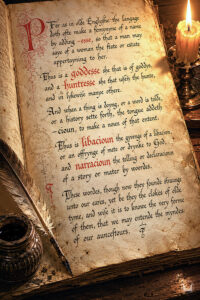 For as in olde Englysshe the langage
doth ofte make a fornsyme of a name
by adding -esse, so that a name of a man
may saye of a woman the state or estate
appertaynyng to her.
Thus is a goddesse she that is of goddys,
and a huntresse she that useth the hunte,
and in lykewise manye othere.
And when a thing is doing, or a word is told,
or a history sette forth, the tongue addeth
-cioun, to make a noun of that entent.
Thus is libacioun the gyvinge of a libacion,
or an offrynge of mete or drynke to God,
and narracioun the telling or declaracioun
of a story or mater by wordes.
These wordes, though now they founde straunge
unto our eares, yet be they the clokes of olde
tyme, and wise it is to knowe the very forme
of them, that we may entende the myndes
of our auncestours.